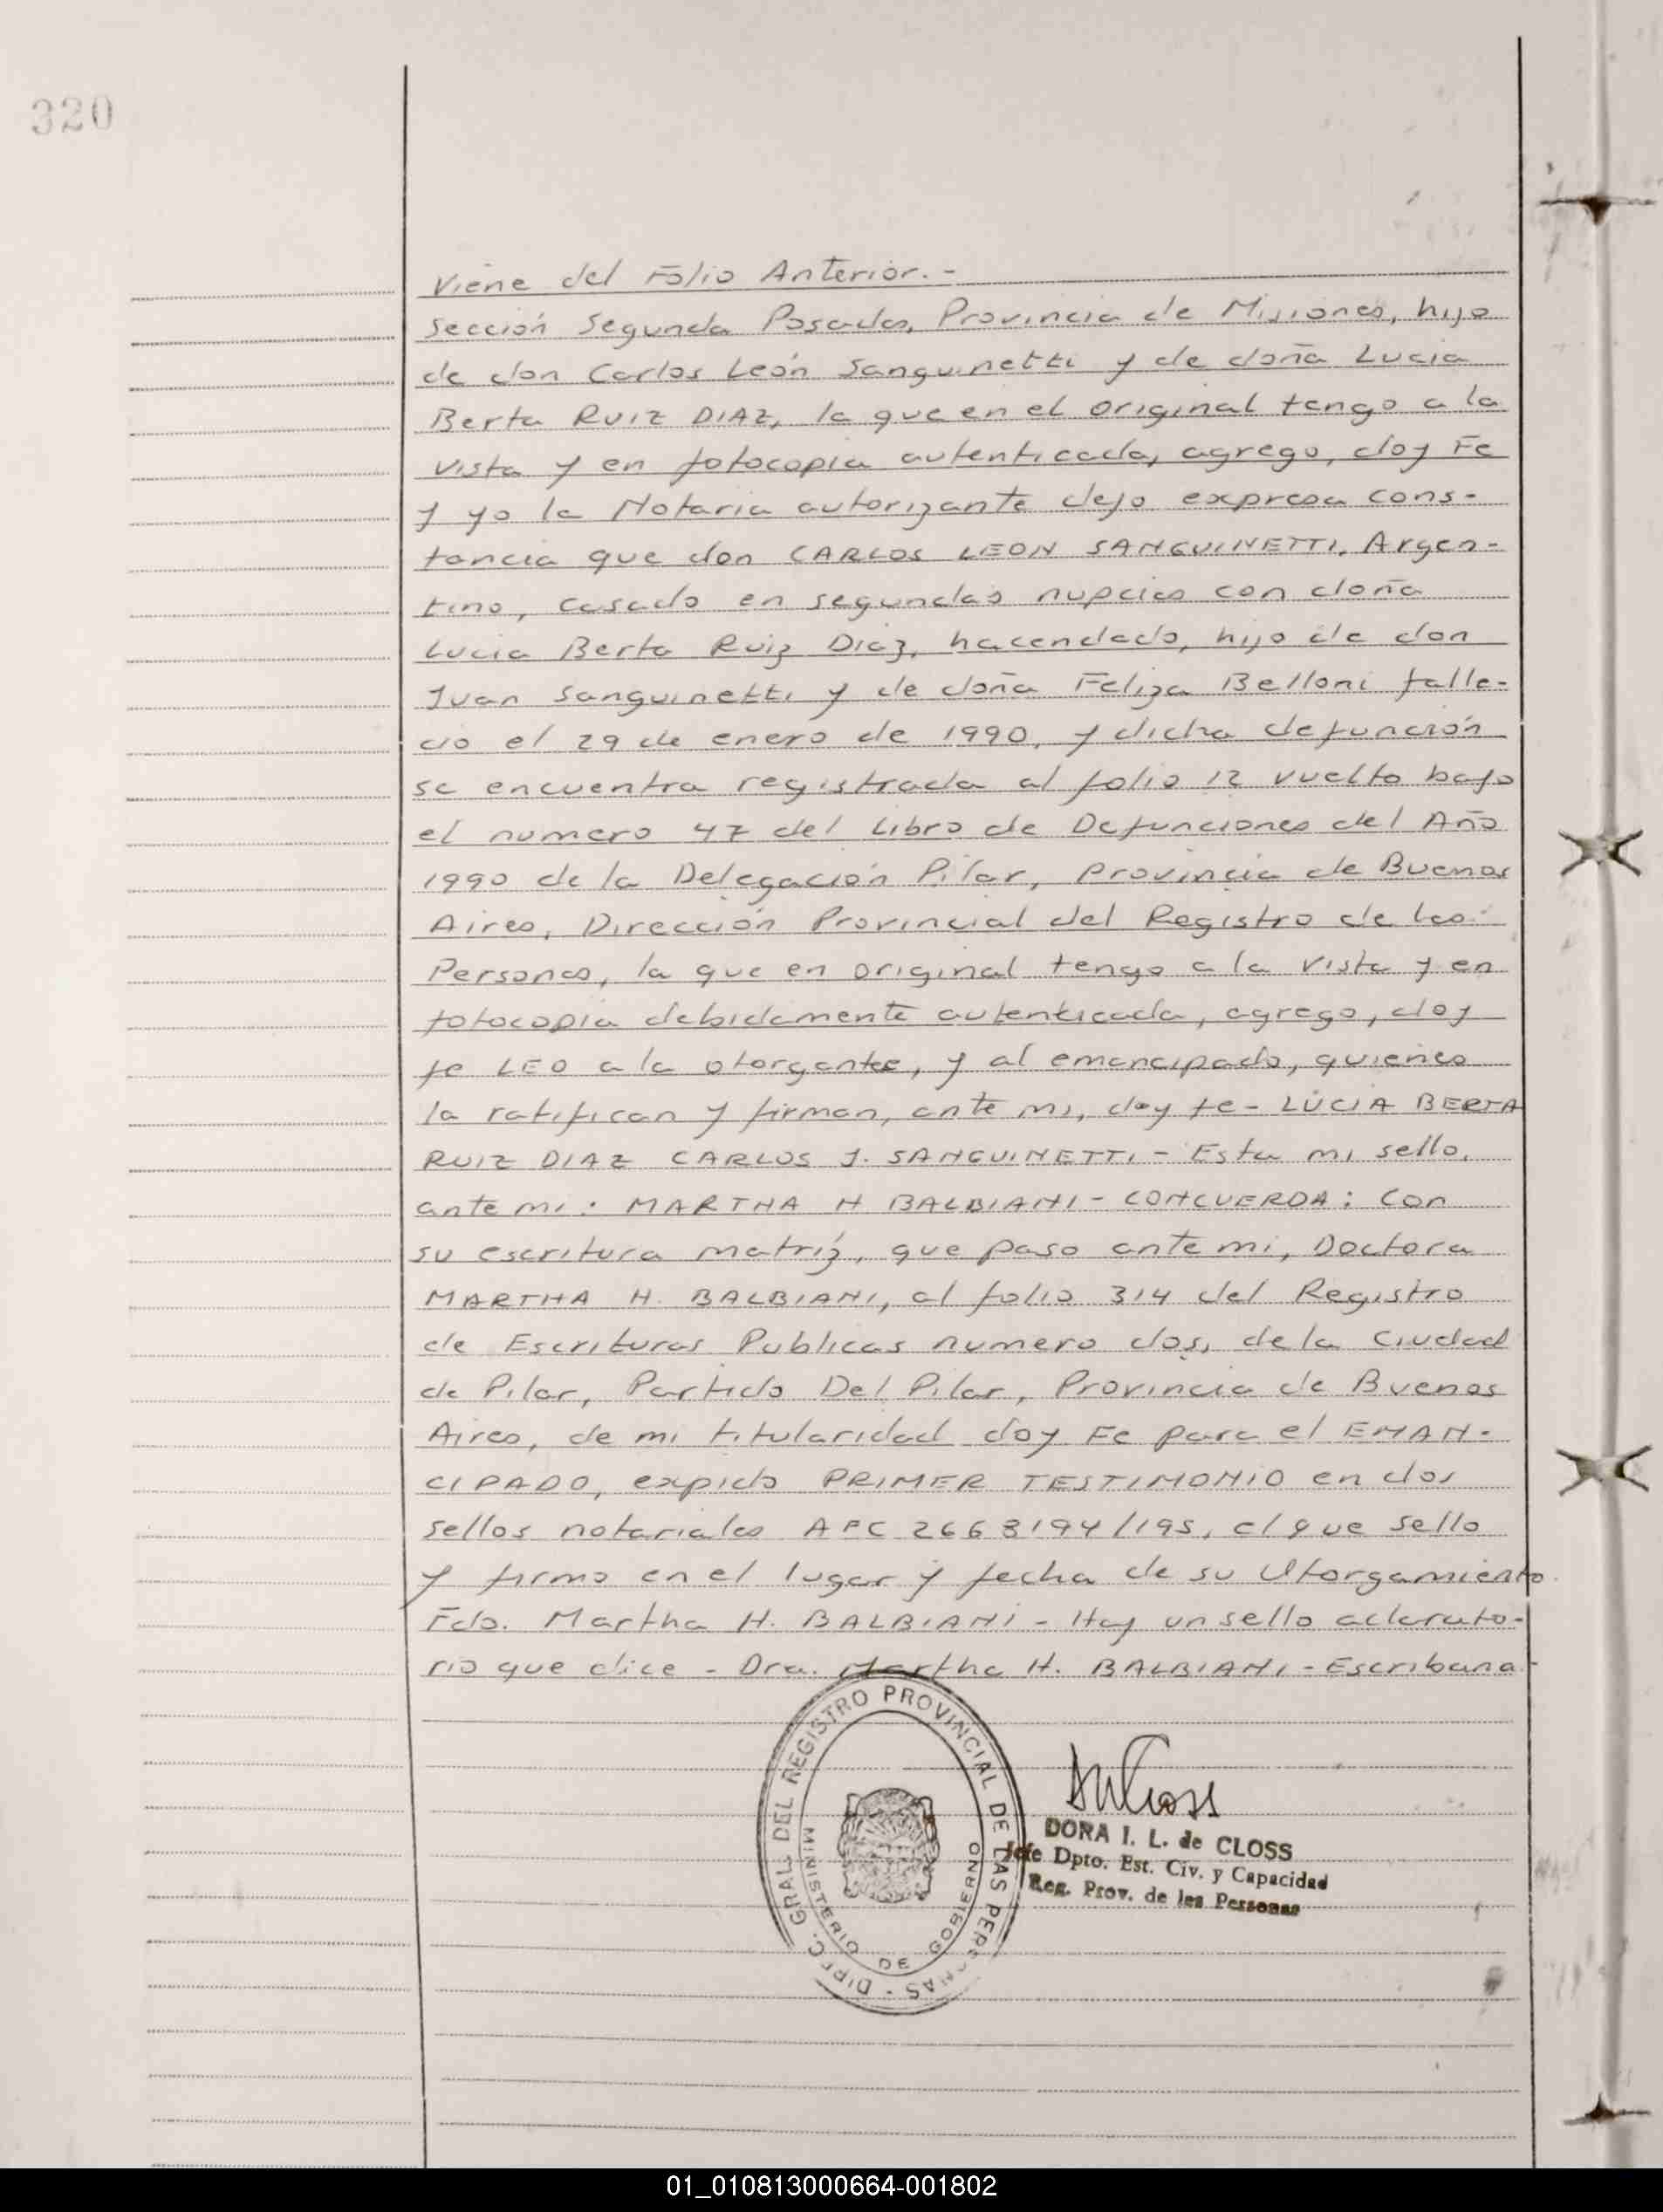 320
Viene del Folio Anterior.-
Sección Segunda Posadas, Provincia de Misiones, hijo
de don Carlos León Sanguinetti y de doña Lucia
Berta RUIZ DIAZ, la que en el original tengo a la
vista y en fotocopia autenticada, agrego, doy Fe
y yo la Notaria autorizante dejo expresa cons-
tancia que don CARLOS LEON SANGUINETTI, Argen-
tino, casado en segundas nupcias con doña
Lucia Berta Ruiz Diaz, hacendado, hijo de don
Juan Sanguinetti y de doña Feliza Belloni falle-
cio el 29 de enero de 1990, y dicha defunción
se encuentra registrada al folio 12 vuelto bajo
el numero 47 del Libro de Defunciones del Año
1990 de la Delegación Pilar, Provincia de Buenos
Aires, Dirección Provincial del Registro de las
Personas, la que en original tengo a la vista y en
fotocopia debidamente autenticada, agrego, doy
fe LEO a la otorgantes, y al emancipado, quienes
la ratifican y firman, ante mi, doy fe- LUCIA BERTA
RUIZ DIAZ CARLOS J. SANGUINETTI - Esta mi sello,
ante mi: MARTHA H BALBIANI - CONCUERDA: Con
su escritura matriz, que paso ante mi, Doctora
MARTHA H. BALBIANI, al folio 314 del Registro
de Escrituras Publicas numero dos, de la Ciudad
de Pilar, Partido Del Pilar, Provincia de Buenos
Aires, de mi titularidad doy Fe para el EMAN-
CIPADO, expido PRIMER TESTIMONIO en dos
sellos notariales 194/195, el que sello
y firmo en el lugar y fecha de su Otorgamiento
Fdo. Martha H. BALBIANI - Hay un sello aclarato-
rio que dice - Dra. Martha H. BALBIANI - Escribana-
DIREC. GRAL. DEL REGISTRO PROVINCIAL DE LAS PERSONAS -
MINISTERIO DE GOBIERNO
DORA I. L. de CLOSS
Jefe Dpto. Est. Civ. y Capacidad
Reg. Prov. de las Personas
01_010813000664-001802